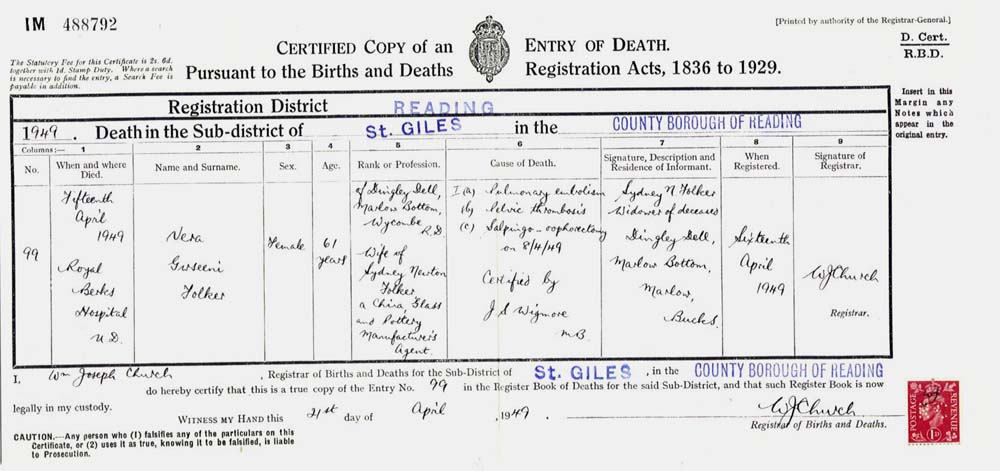 IM 488792
[Printed by authority of the Registrar-General.]
The Statutory Fee for this Certificate is 2s. 6d.
together with 1d. Stamp Duty. Where a search
is necessary to find the entry, a Search Fee is
payable in addition.
CERTIFIED COPY of an ENTRY OF DEATH.
Pursuant to the Births and Deaths Registration Acts, 1836 to 1929.
D. Cert.
R.B.D.
Insert in this
Margin any
Notes which
appear in the
original entry.
Registration District READING
1949. Death in the Sub-district of St. GILES in the COUNTY BOROUGH OF READING
Columns:— 1 2 3 4 5 6 7 8 9
No.
When and where
Died.
Name and Surname.
Sex.
Age.
Rank or Profession.
Cause of Death.
Signature, Description and
Residence of Informant.
When
Registered.
Signature of
Registrar.
99
Fifteenth
April
1949
Royal
Berks
Hospital
U.D.
Vera
Folker
Female
61
years
of Dingley Dell,
Marlow Bottom,
Wycombe
R.D.
Wife of
Sydney Newton
Folker
a China Glass
and Pottery
Manufacturer's
Agent.
I (a) Pulmonary embolism
(b) Pelvic thrombosis
(c) Salpingo-oophorectomy
on 8/4/49
Certified by
J S Wigmore
M.B.
Sydney N Folker
Widower of deceased
Dingley Dell,
Marlow Bottom,
Marlow,
Bucks.
Sixteenth
April
1949
WJChurch
Registrar.
I, Wm Joseph Church, Registrar of Births and Deaths for the Sub-District of St. GILES, in the COUNTY BOROUGH OF READING
do hereby certify that this is a true copy of the Entry No. 99 in the Register Book of Deaths for the said Sub-District, and that such Register Book is now
legally in my custody.
WITNESS MY HAND this 21st day of April, 1949.
WJChurch
Registrar of Births and Deaths.
CAUTION.—Any person who (1) falsifies any of the particulars on this
Certificate, or (2) uses it as true, knowing it to be falsified, is liable
to Prosecution.
POSTAGE
REVENUE
1D